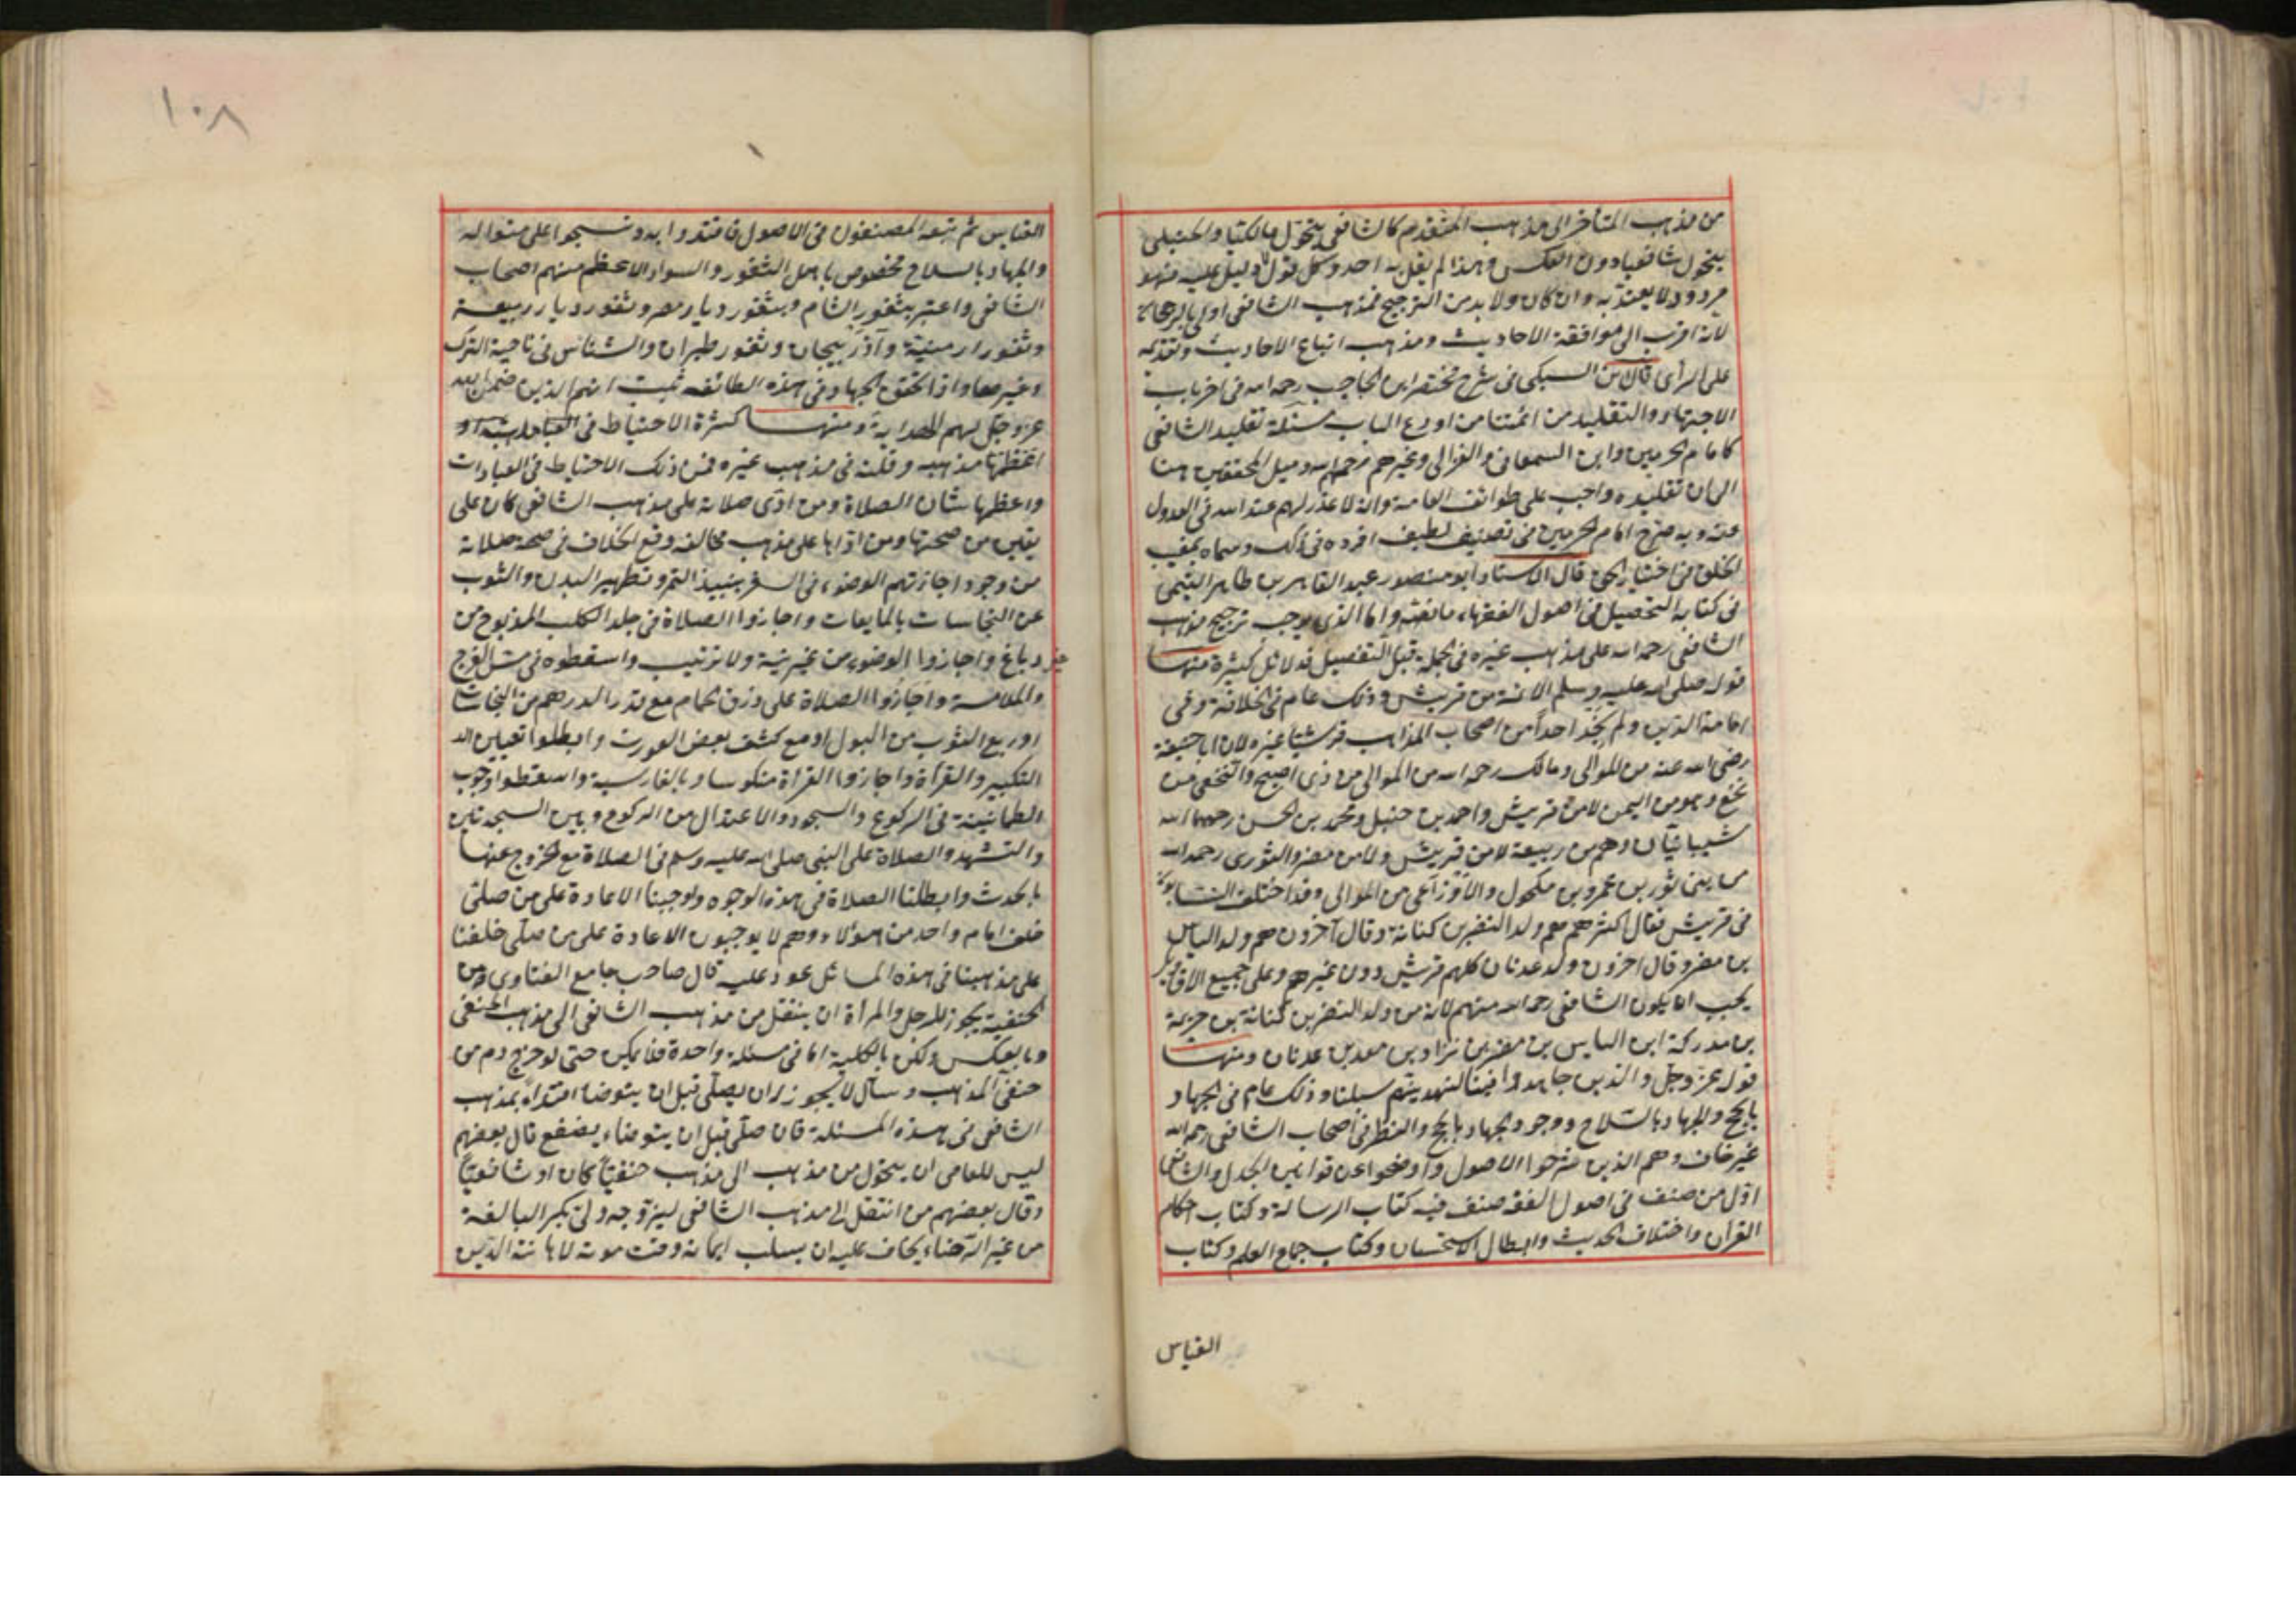 من مذهب المتأخر الى مذهب المتقدم كالشافعى يتحوّل مالكيا والحنبلى
يتحول شافعيا دون العكس وهذا لم يقل به احد وكل قول لا دليل عليه فهو
مردود ولا يعتد به وان كان ولا بد من الترجيح فمذهب الشافعى اولى بالرجحان
لانه اقرب الى موافقة الاحاديث ومذهب اتباع الاحاديث وتقديمه
على الرأى قال ابن السبكى فى شرح مختصر ابن الحاجب رحمه الله فى اخر باب
الاجتهاد والتقليد من ائمتنا من اودع الباب مسئلة تقليد الشافعى
كامام الحرمين وابن السمعانى والغزالى وغيرهم رحمهم الله وميل المحققين هنا
الى ان تقليده واجب على طوائف العامة وانه لا عذر لهم عند الله فى العدول
عنه وبه صرح امام الحرمين فى تصنيف لطيف افرده فى ذلك وسماه بمغيث
الخلق فى اختيار الحق قال الاستاد ابو منصور عبد القاهر بن طاهر التيمى
فى كتابه التحصيل فى اصول الفقهاء ما نصه واما الذى يوجب ترجيح مذهب
الشافعى رحمه الله على مذهب غيره فى الجملة قبل التفصيل فدلائل كثيرة منها
قوله صلى الله عليه وسلم الائمة من قريش وذلك عام فى الخلافة وفى
امامة الدين ولم نجد احداً من اصحاب المذاهب قرشيا غيره لان ابا حنيفة
رضى الله عنه من الموالى ومالك رحمه الله من الموالى من ذى اصبح والنخعى من
نخع وهو من اليمن لا من قريش واحمد بن حنبل ومحمد بن الحسن رحمهما الله
شيبانيان وهم من ربيعة لا من قريش ولا من مضر والثورى رحمه الله
من بنى ثور بن عمرو بن مكحول والاوزاعى من الموالى وقد اختلف النسابون
فى قريش فقال اكثرهم هم ولد النضر بن كنانة وقال آخرون هم ولد الياس
بن مضر وقال اخرون ولد عدنان كلهم قريش دون غيرهم وعلى جميع الاقاويل
يجب ان يكون الشافعى رحمه الله منهم لانه من ولد النضر بن كنانة بن خزيمة
بن مدركة ابن الياس بن مضر بن نزار بن معد بن عدنان ومنها
قوله عز وجل والذين جاهدوا فينا لنهدينهم سبلنا وذلك عام فى الجهاد
بالحج والجهاد بالسلاح ووجود الجهاد بالحج والنظر فى اصحاب الشافعى رحمه الله
غير خاف وهم الذين شرحوا الاصول واوضحوا عن قوانين الجدل والشافعى
اوّل من صنف فى اصول الفقه صنف فيه كتاب الرسالة وكتاب احكام
القرآن واختلاف الحديث وابطال الاستحسان وكتاب جماع العلم وكتاب
القياس
١٠٨
القياس ثم تبعه المصنفون فى الاصول فاقتدوا به ونسجوا على منواله
والجهاد بالسلاح مخصوص باهل الثغور والسواد الاعظم منهم اصحاب
الشافعى واعتبر بثغور الشام وبثغور ديار مصر وثغور ديار ربيعة
وثغور ارمينية وآذربيجان وثغور طبران والشاس فى ناحية الترك
وغيرها واذا تحقق الجهاد فى هذه الطائفة ثبت انهم الذين ضمن الله
عز وجل لهم الهداية ومنها كثرة الاحتياط فى العبادات
اعظمها مذهبه وقلته فى مذهب غيره فمن ذلك الاحتياط فى العبادات
واعظمها شان الصلاة ومن ادّى صلاته على مذهب الشافعى كان على
يقين من صحتها ومن اداها على مذهب مخالفه وقع الخلاف فى صحة صلاته
من وجوه اجازتهم الوضوء فى السفر بنبيذ التمر وتطهير البدن والثوب
عن النجاسات بالمايعات واجازوا الصلاة فى جلد الكلب المذبوح من
غير دباغ واجازوا الوضوء من غير نية ولا ترتيب واسقطوه فى مس الفرج
والملامسة واجازوا الصلاة على ذرق الحمام مع قدر الدرهم من النجاسات
اور ربع الثوب من البول او مع كشف بعض العورت وابطلوا تعيين
التكبير والقرأة واجازوا القرأة منكوسا وبالفارسية واسقطوا وجوب
الطمانينة فى الركوع والسجود والاعتدال من الركوع وبين السجدتين
والتشهد والصلاة على النبى صلى الله عليه وسلم فى الصلاة مع الخروج عنها
بالحدث وابطلنا الصلاة فى هذه الوجوه واوجبنا الاعادة على من صلى
خلف امام واحد من هؤلاء وهم لا يوجبون الاعادة على من صلّى خلفنا
على مذهبنا فى هذه المسائل عود عليه قال صاحب جامع الفتاوى من
الحنفية يجوز للرجل والمرأة ان ينتقل من مذهب الشافعى الى مذهب الحنفى
وبالعكس ولكن بالكلية اما فى مسئلة واحدة فلا يمكن حتى لو خرج دم من
حنفى المذهب وسال لا يجوز له ان يصلّى قبل ان يتوضا اقتداءً بمذهب
الشافعى فى هذه المسئلة فان صلّى قبل ان يتوضاء يصفع قال بعضهم
ليس للعامى ان يتحول من مذهب الى مذهب حنفيّاً كان او شافعيّاً
وقال بعضهم من انتقل الى مذهب الشافعى ليتزوّجه ولىّ بكر البالغة
من غير الرّضاء يخاف عليه ان يسلب ايمانه وقت موته لاهانته الدّين